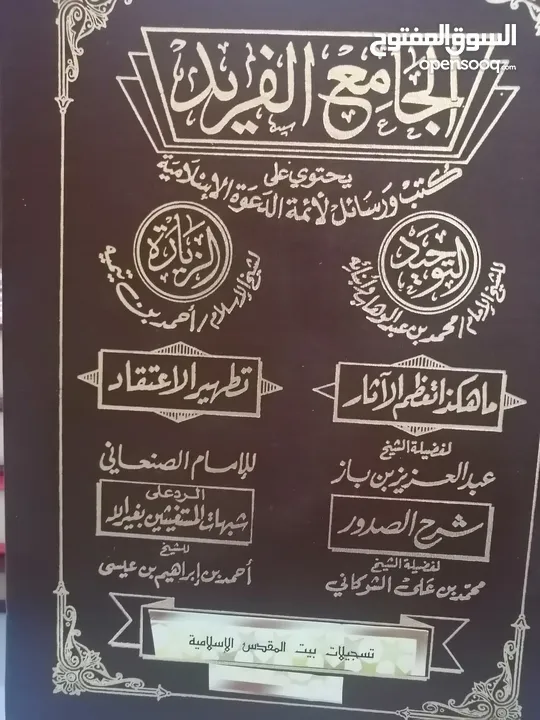 السوق المفتوح
opensooq.com
الجامع الفريد
يحتوي على
كتب ورسائل لأئمة الدعوة الإسلامية
التوحيد
للشيخ الإمام/محمد بن عبد الوهاب وأبنائه
الزيارة
لشيخ الإسلام/أحمد بن تيميه
ما هكذا تعظم الآثار
لفضيلة الشيخ
عبد العزيز بن باز
تطهير الاعتقاد
للإمام الصنعاني
شرح الصدور
لفضيلة الشيخ
محمد بن على الشوكاني
الرد على
شبهات المستغيثين بغير الله
للشيخ
أحمد بن إبراهيم بن عيسى
تسجيلات بيت المقدس الإسلامية